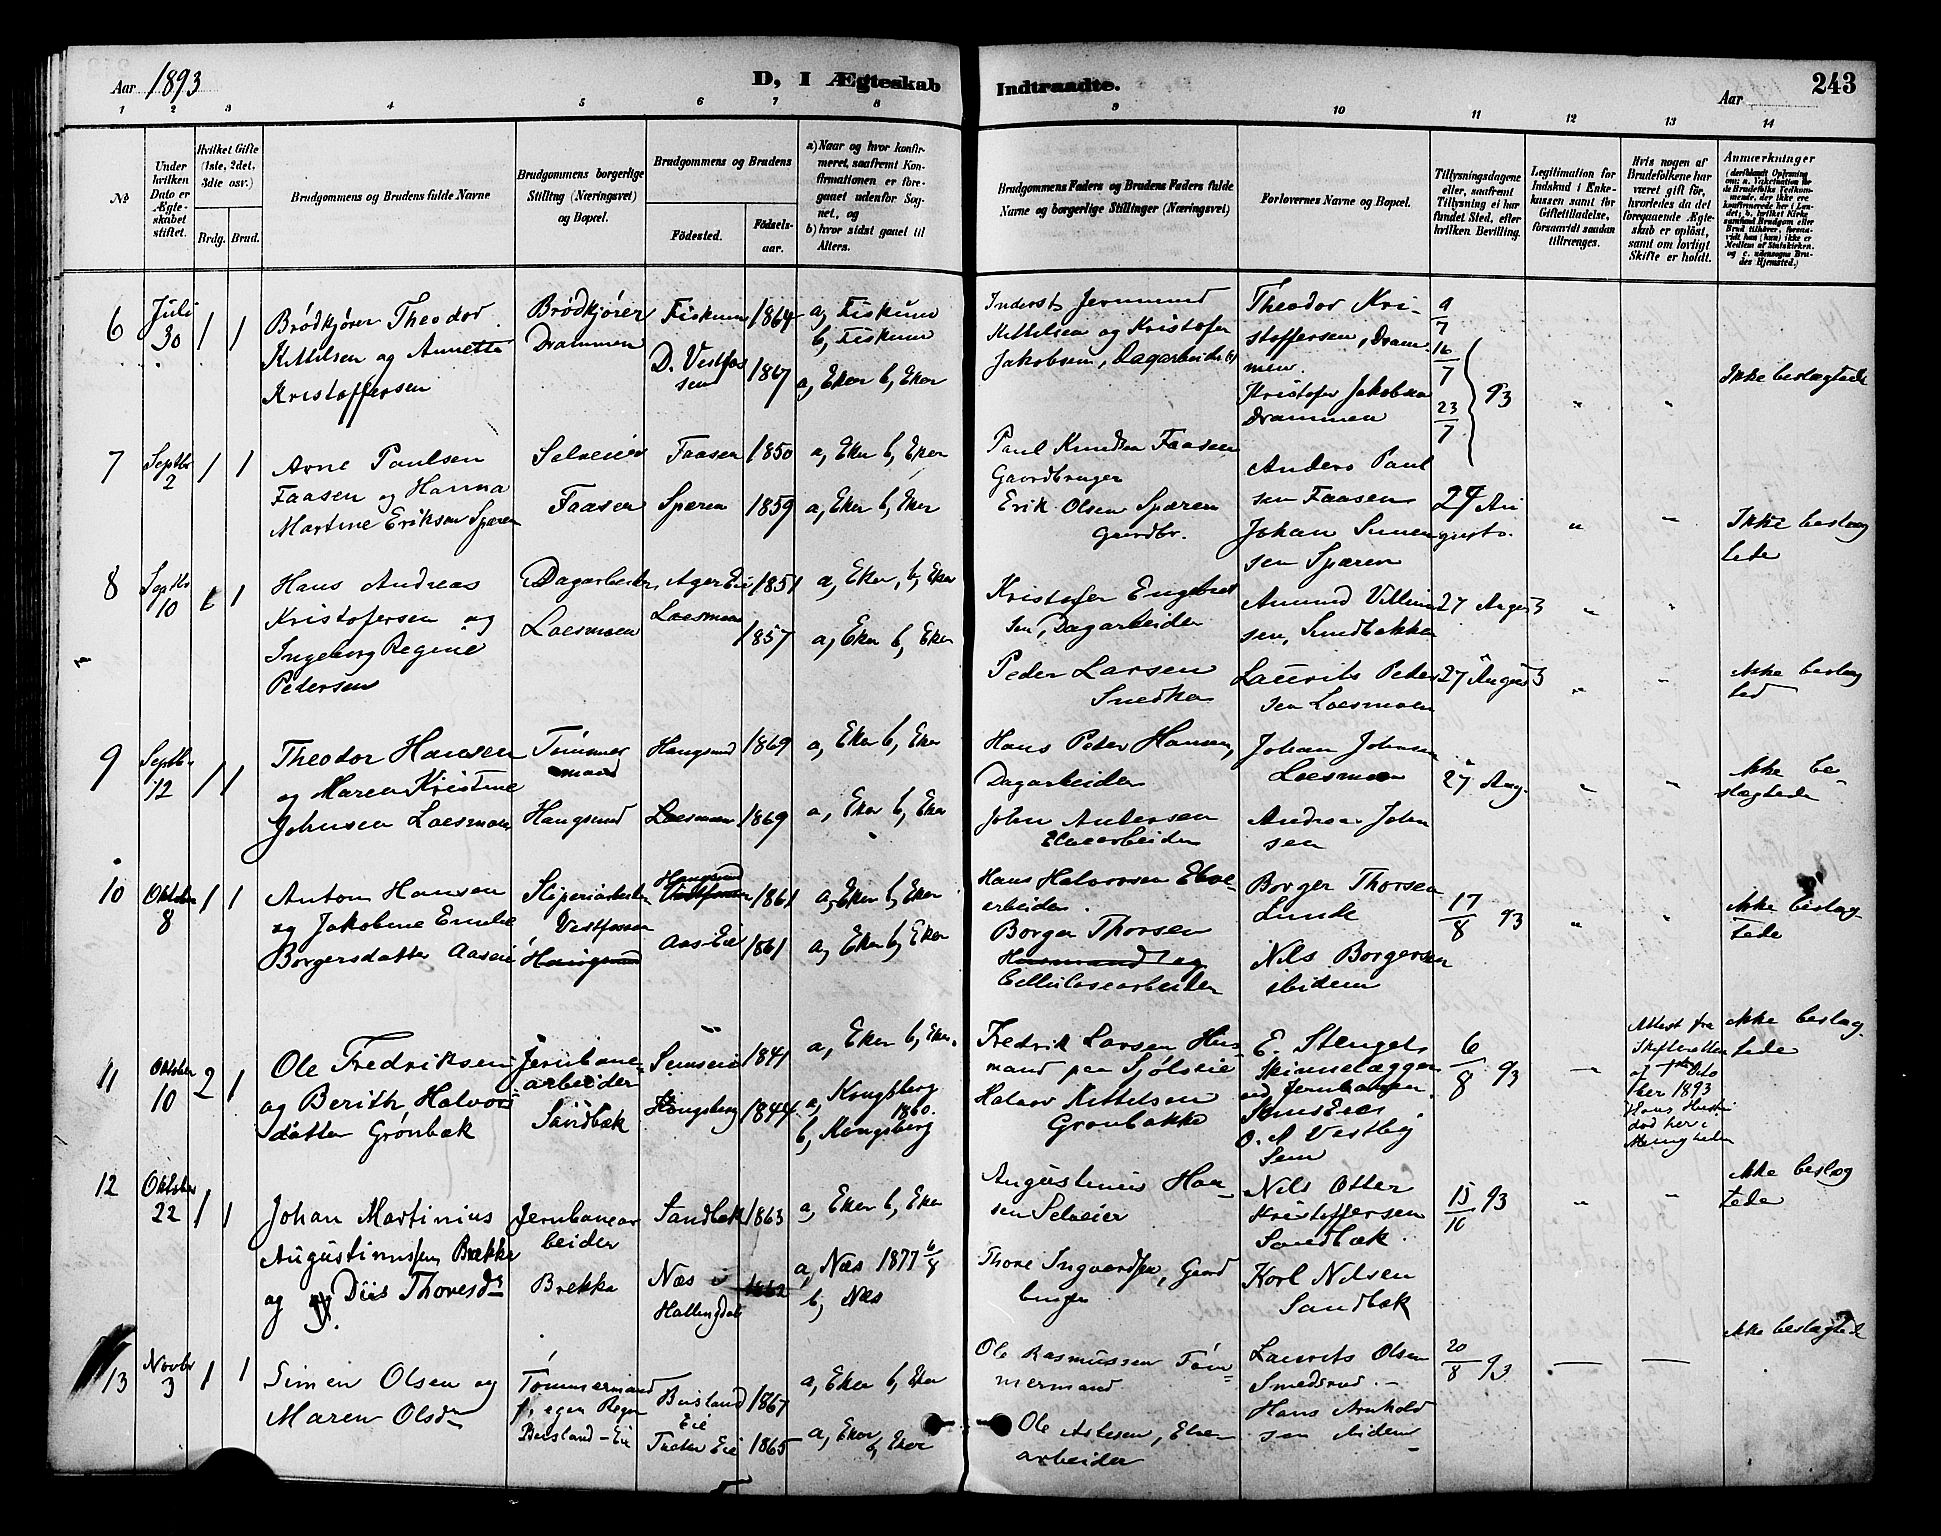 Aar 1893
D, I Ægteskab Indtraadte.
243
Aar
1 2 3 4 5 6 7 8 9 10 11 12 13 14
No
Under hvilken Dato er Ægteskabet stiftet.
Hvilket Gifte (1ste, 2det, 3die osv.)
Brdg. Brud.
Brudgommens og Brudens fulde Navne
Brudgommens borgerlige Stilling (Næringsvei) og Bopæl.
Brudgommens og Brudens
Födested. Födselsaar.
a) Naar og hvor konfirmeret, saafremt Konfirmationen er foregaaet udenfor Sognet, og
b) hvor sidst gaaet til Alters.
Brudgommens Faders og Brudens Faders fulde Navne og borgerlige Stillinger (Næringsvei)
Forlovernes Navne og Bopæl.
Tillysningsdagene eller, saafremt Tillysning ei har fundet Sted, efter hvilken Bevilling.
Legitimation for Indskud i Enkekassen samt for Giftetilladelse, forsaavidt saadan tiltrænges.
Hvis nogen af Brudefolkene har været gift før, hvorledes da det foregaaende Ægteskab er opløst, samt om lovligt Skifte er holdt.
Anmærkninger
6 Juli 30 1 1
Brödkjörer Theodor
Kittilsen og Annette
Kristoffersen
Brödkjörer
Drammen
Fiskum 1864
D. Vestfossen 1867
a, Fiskum
b, Fiskum
a, Eker b, Eker
Inderst Jermund
Kittelsen og Kristofer
Jakobsen, Dagarbeider
Theodor Kristoffersen, Drammen.
Kristofer Jakobsen
Drammen
9/7 16/7 23/7 93
" "
Ikke beslægtede
7 Septbr 2 1 1
Arne Paulsen
Faasen og Hanna
Martine Eriksen Spæren
Selveier
Faasen
Faasen 1850
Spæren 1859
a, Eker b, Eker
a, Eker b, Eker
Paul Knudsen Faasen
Gaardbruger
Erik Olsen Spæren
Gaardbr.
Anders Paulsen Faasen
Johan Simensen Spæren
27 Augusto.
" "
Ikke beslægtede
8 Septbr 10 1 1
Hans Andreas
Kristofersen og
Ingeborg Regine
Petersen
Dagarbeider
Loesmoen
Ager Eie 1851
Loesmoen 1857
a, Eker, b, Eker
a, Eker b, Eker
Kristofer Engebretsen, Dagarbeider
Peder Larsen
Snedker
Amund Villumsen, Sundbakken
Laurits Petersen Loesmoen
27 August
27 August
" "
Ikke beslægted
9 Septbr 12 1 1
Theodor Hansen
og Maren Kristine
Johnsen Loesmoen
Tömmermand
Haugsund
Haugsund 1869
Loesmoen 1869
a, Eker b, Eker
a, Eker b, Eker
Hans Peter Hansen,
Dagarbeider
John Andersen
Elvearbeider
Johan Johnsen
Loesmoen
Andreas Johnsen
27 Aug.
" "
Ikke beslægtede
10 Oktober 8 1 1
Anton Hansen
og Jakobine Emilie
Borgersdatter Aaseie
Sliperiarbeider
Vestfossen
Haugsund
Haugsund
Vestfossen 1861
Aas-Eie 1861
a, Eker b, Eker
a, Eker b, Eker
Hans Halvorsen Elvearbeider.
Borger Thorsen
Husmand og
Cellulosearbeider
Borger Thorsen
Lunde
Nils Borgersen
ibidem
17/8 93
" "
Ikke beslægtede
11 Oktober 10 2 1
Ole Fredriksen
og Berith Halvorsdatter Grönbæk
Jernbanearbeider
Sandbæk
Semseie 1841
Kongsberg 1844
a, Eker b, Eker.
a, Kongsberg 1860.
b, Kongsberg
Fredrik Larsen Husmand paa Sjölseie
Halvor Kittelsen
Grönbakke
E. Stengel,
Skinnelægger
ved Jernbanen.
Semseie
O. A. Vestby
Sem
6/8 93
"
Attest fra
Skifteretten
af Oktober 1893
Hans Hustru
död her i
Menigheden
Ikke beslægtede
12 Oktober 22 1 1
Johan Martinius
Augustinussen Brekke
og Diis Thoresd.
Jernbanearbeider
Brekke
Sandbæk 1863
Næs i Hallingdal 1862
a, Eker b, Eker
a, Næs 1877 6/8
b, Næs
Augustinius Hansen Selveier
Thore Ingvardsen, Gaardbruger
Nils Otter
Kristoffersen
Sandbæk.
Karl Nilsen
Sandbæk
15/10 93
" "
Ikke beslægtede
13 Novbr 3 1 1
Simen Olsen og
Maren Olsd.
Tömmermand
f. egen Regn
Berisland-Eie
Berisland Eie 1867
Eie 1865
a, Eker b, Eker
a, Eker b, Eker
Ole Rasmussen Tömmermand
Ole Aslesen, Elvearbeider
Laurits Olsen
Smedsrud.
Hans Arnholdsen
20/8 93
— —
Ikke beslægtede